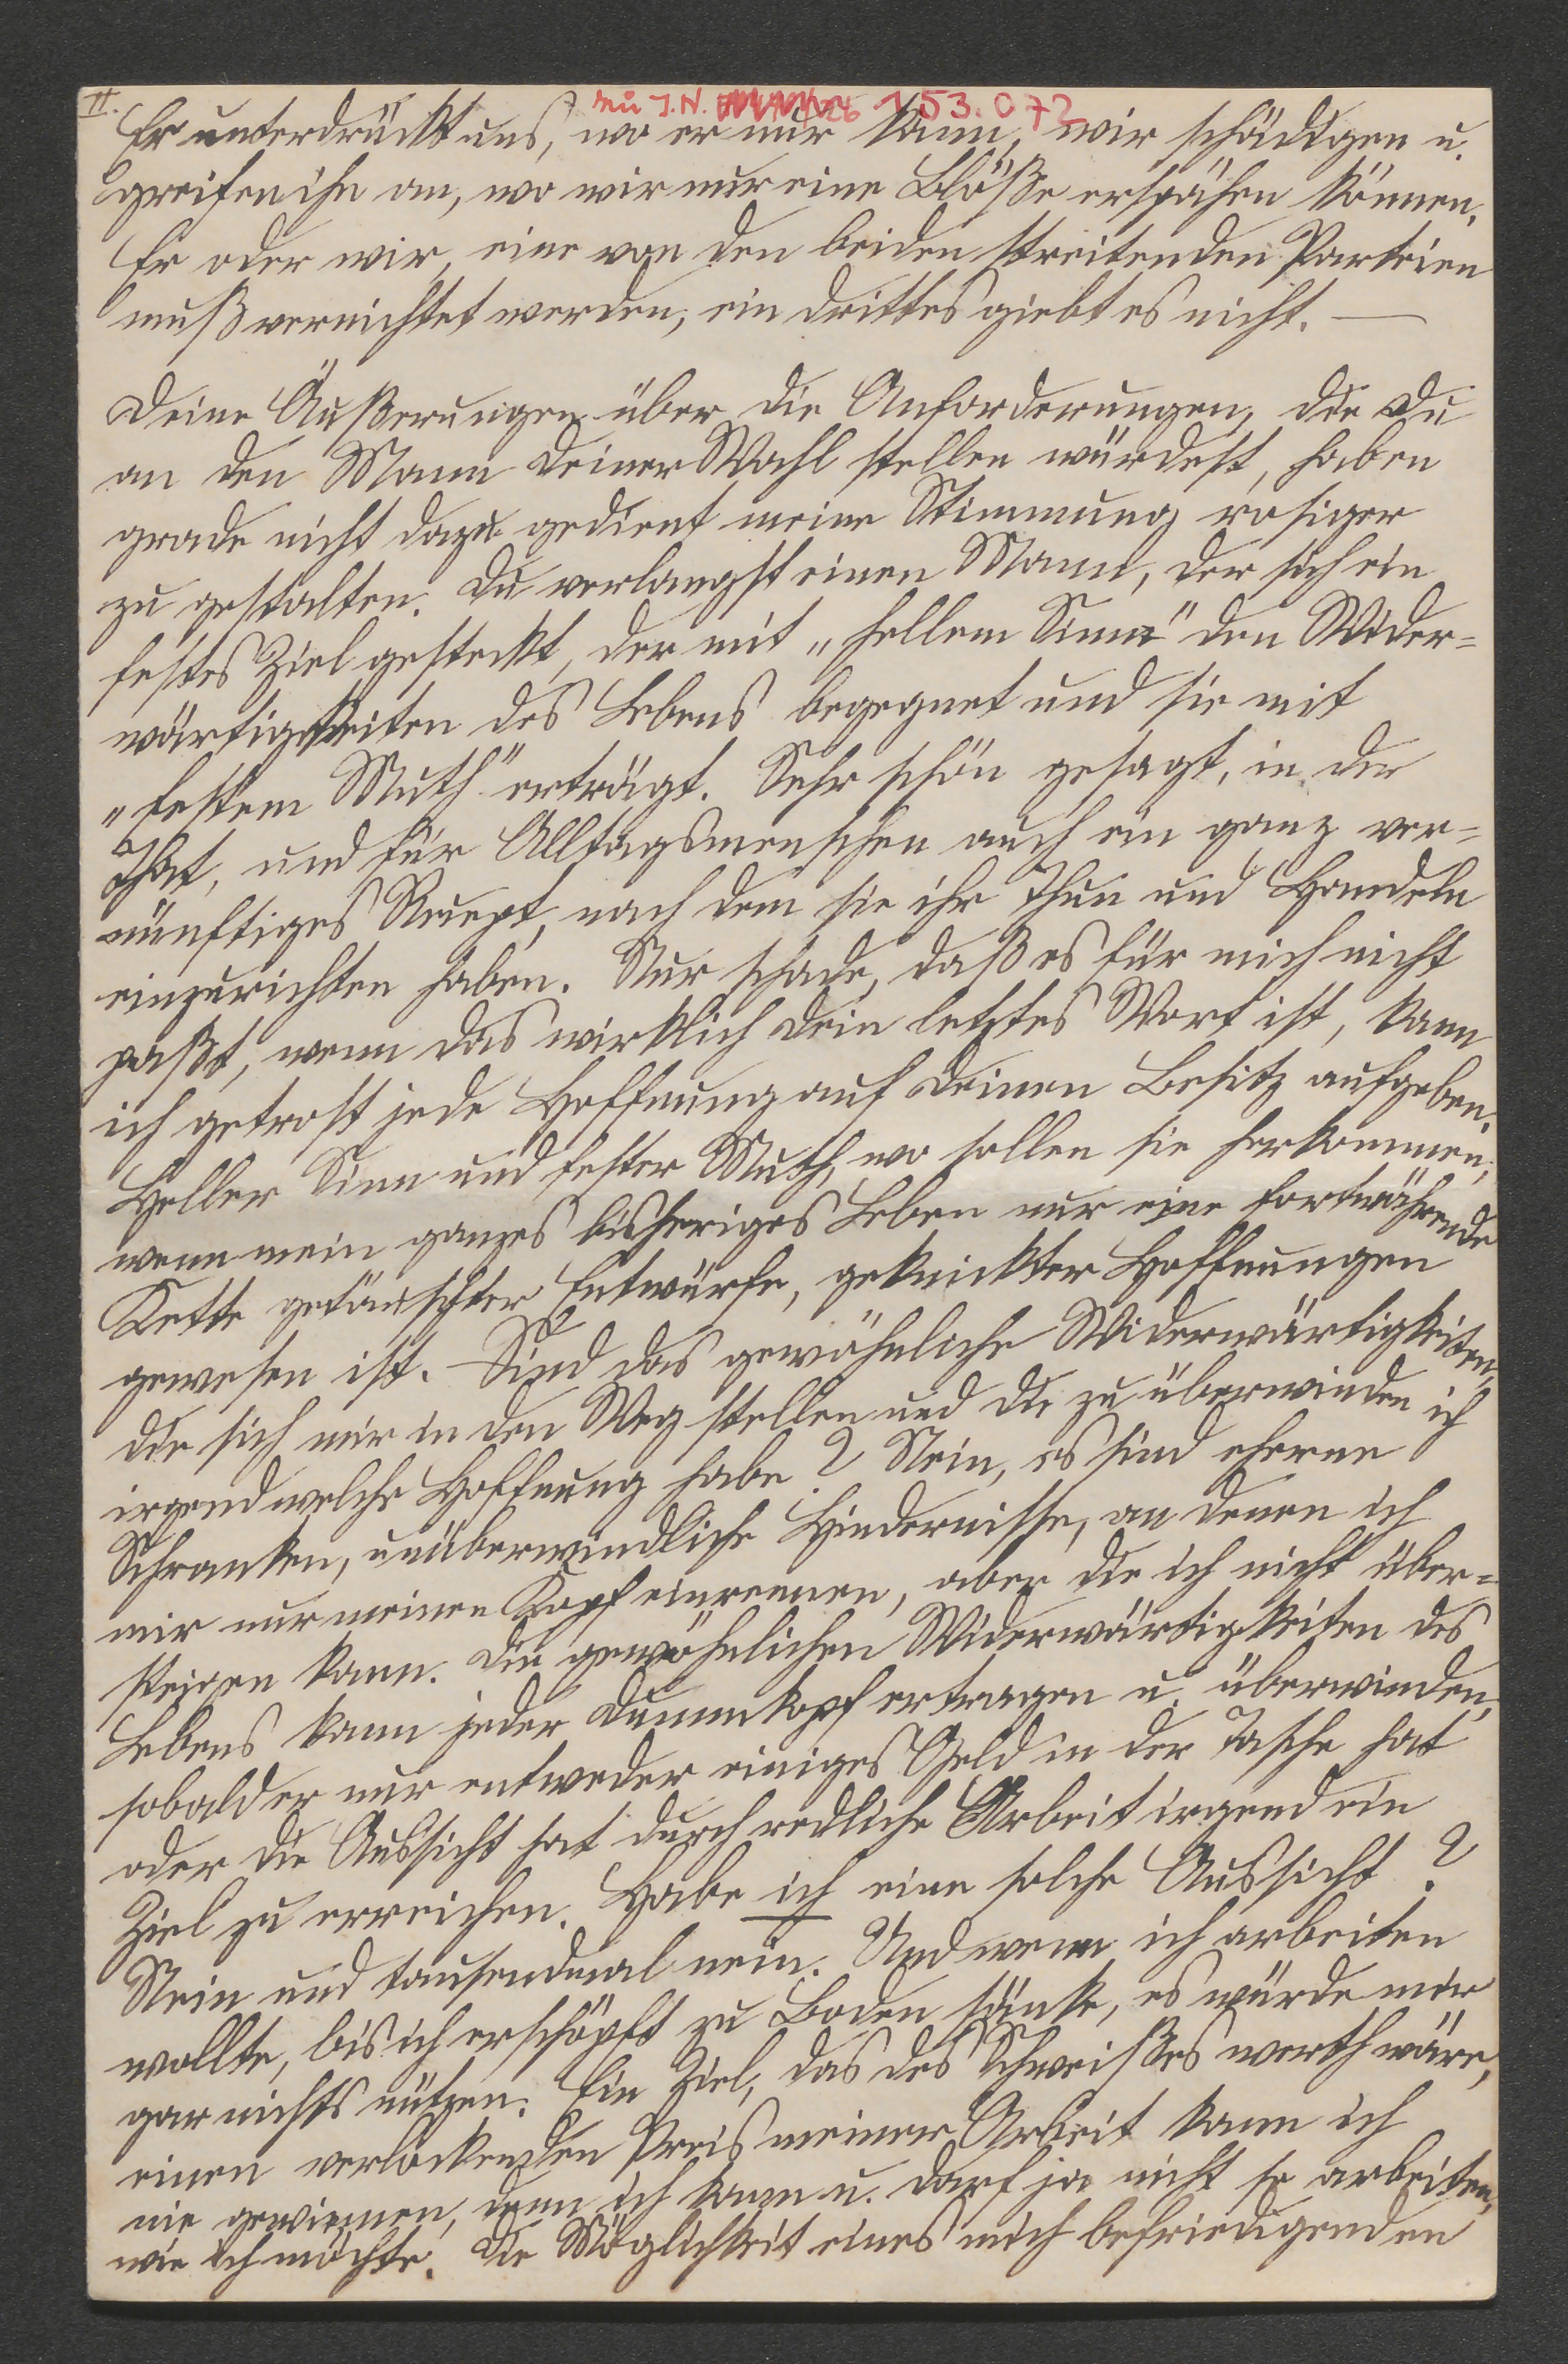 II.
zu I.N. 153.072
Er unterdrückt uns, wo er nur kann, wir schädigen u.
greifen ihn an, wo wir nur eine Blöße erspähen können.
Er oder wir, eine von den beiden streitenden Parteien
muß vernichtet werden, ein drittes giebt es nicht. —
Deine Äußerungen über die Anforderungen, die Du
an den Mann Deiner Wahl stellen würdest, haben
grade nicht dazu gedient meine Stimmung rosiger
zu gestalten. Du verlangst einen Mann, der sich ein
festes Ziel gesteckt, der mit „hellem Sinn" den Wider=
wärtigkeiten des Lebens begegnet und sie mit
„festem Muth" erträgt. Sehr schön gesagt, in der
That, und für Alltagsmenschen auch ein ganz ver=
nünftiges Recept, nach dem sie ihr Thun und Handeln
einzurichten haben. Nur schade, daß es für mich nicht
paßt, wenn das wirklich Dein letztes Wort ist, kann
ich getrost jede Hoffnung auf Deinen Besitz aufgeben.
Heller Sinn und fester Muth, wo sollen sie herkommen,
wenn mein ganzes bisheriges Leben nur eine fortwährende
Kette getäuschter Entwürfe, geknickter Hoffnungen
gewesen ist. Sind das gewöhnliche Widerwärtigkeiten,
die sich mir in den Weg stellen und die zu überwinden ich
irgend welche Hoffnung habe? Nein, es sind eherne
Schranken, unüberwindliche Hindernisse, an denen ich
mir nur meinen Kopf einrennen, aber die ich nicht über=
steigen kann. Die gewöhnlichen Widerwärtigkeiten des
Lebens kann jeder Dummkopf ertragen u. überwinden,
sobald er nur entweder einiges Geld in der Tasche hat
oder die Aussicht hat durch redliche Arbeit irgend ein
Ziel zu erreichen. Habe ich eine solche Aussicht?
Nein und tausendmal nein. Und wenn ich arbeiten
wollte, bis ich erschöpft zu Boden sänke, es würde mir
gar nichts nützen. Ein Ziel, das des Schweißes werth wäre,
einen verlockenden Preis meiner Arbeit kann ich
nie gewinnen, denn ich kann u. darf ja nicht so arbeiten,
wie ich möchte. Die Möglichkeit eines mich befriedigenden